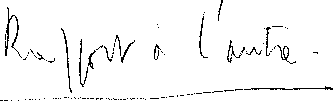 Rapport à l'autre.